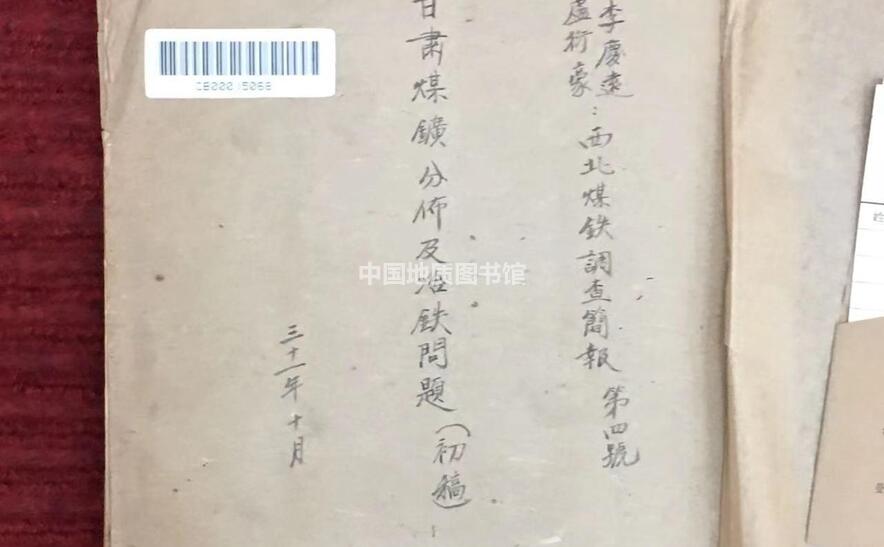 李慶遠
盧衍豪
：西北煤鉄調查簡報 第四號
甘肅煤鑛分佈及冶鉄問題（初稿）
三十一年十月
中国地质图书馆